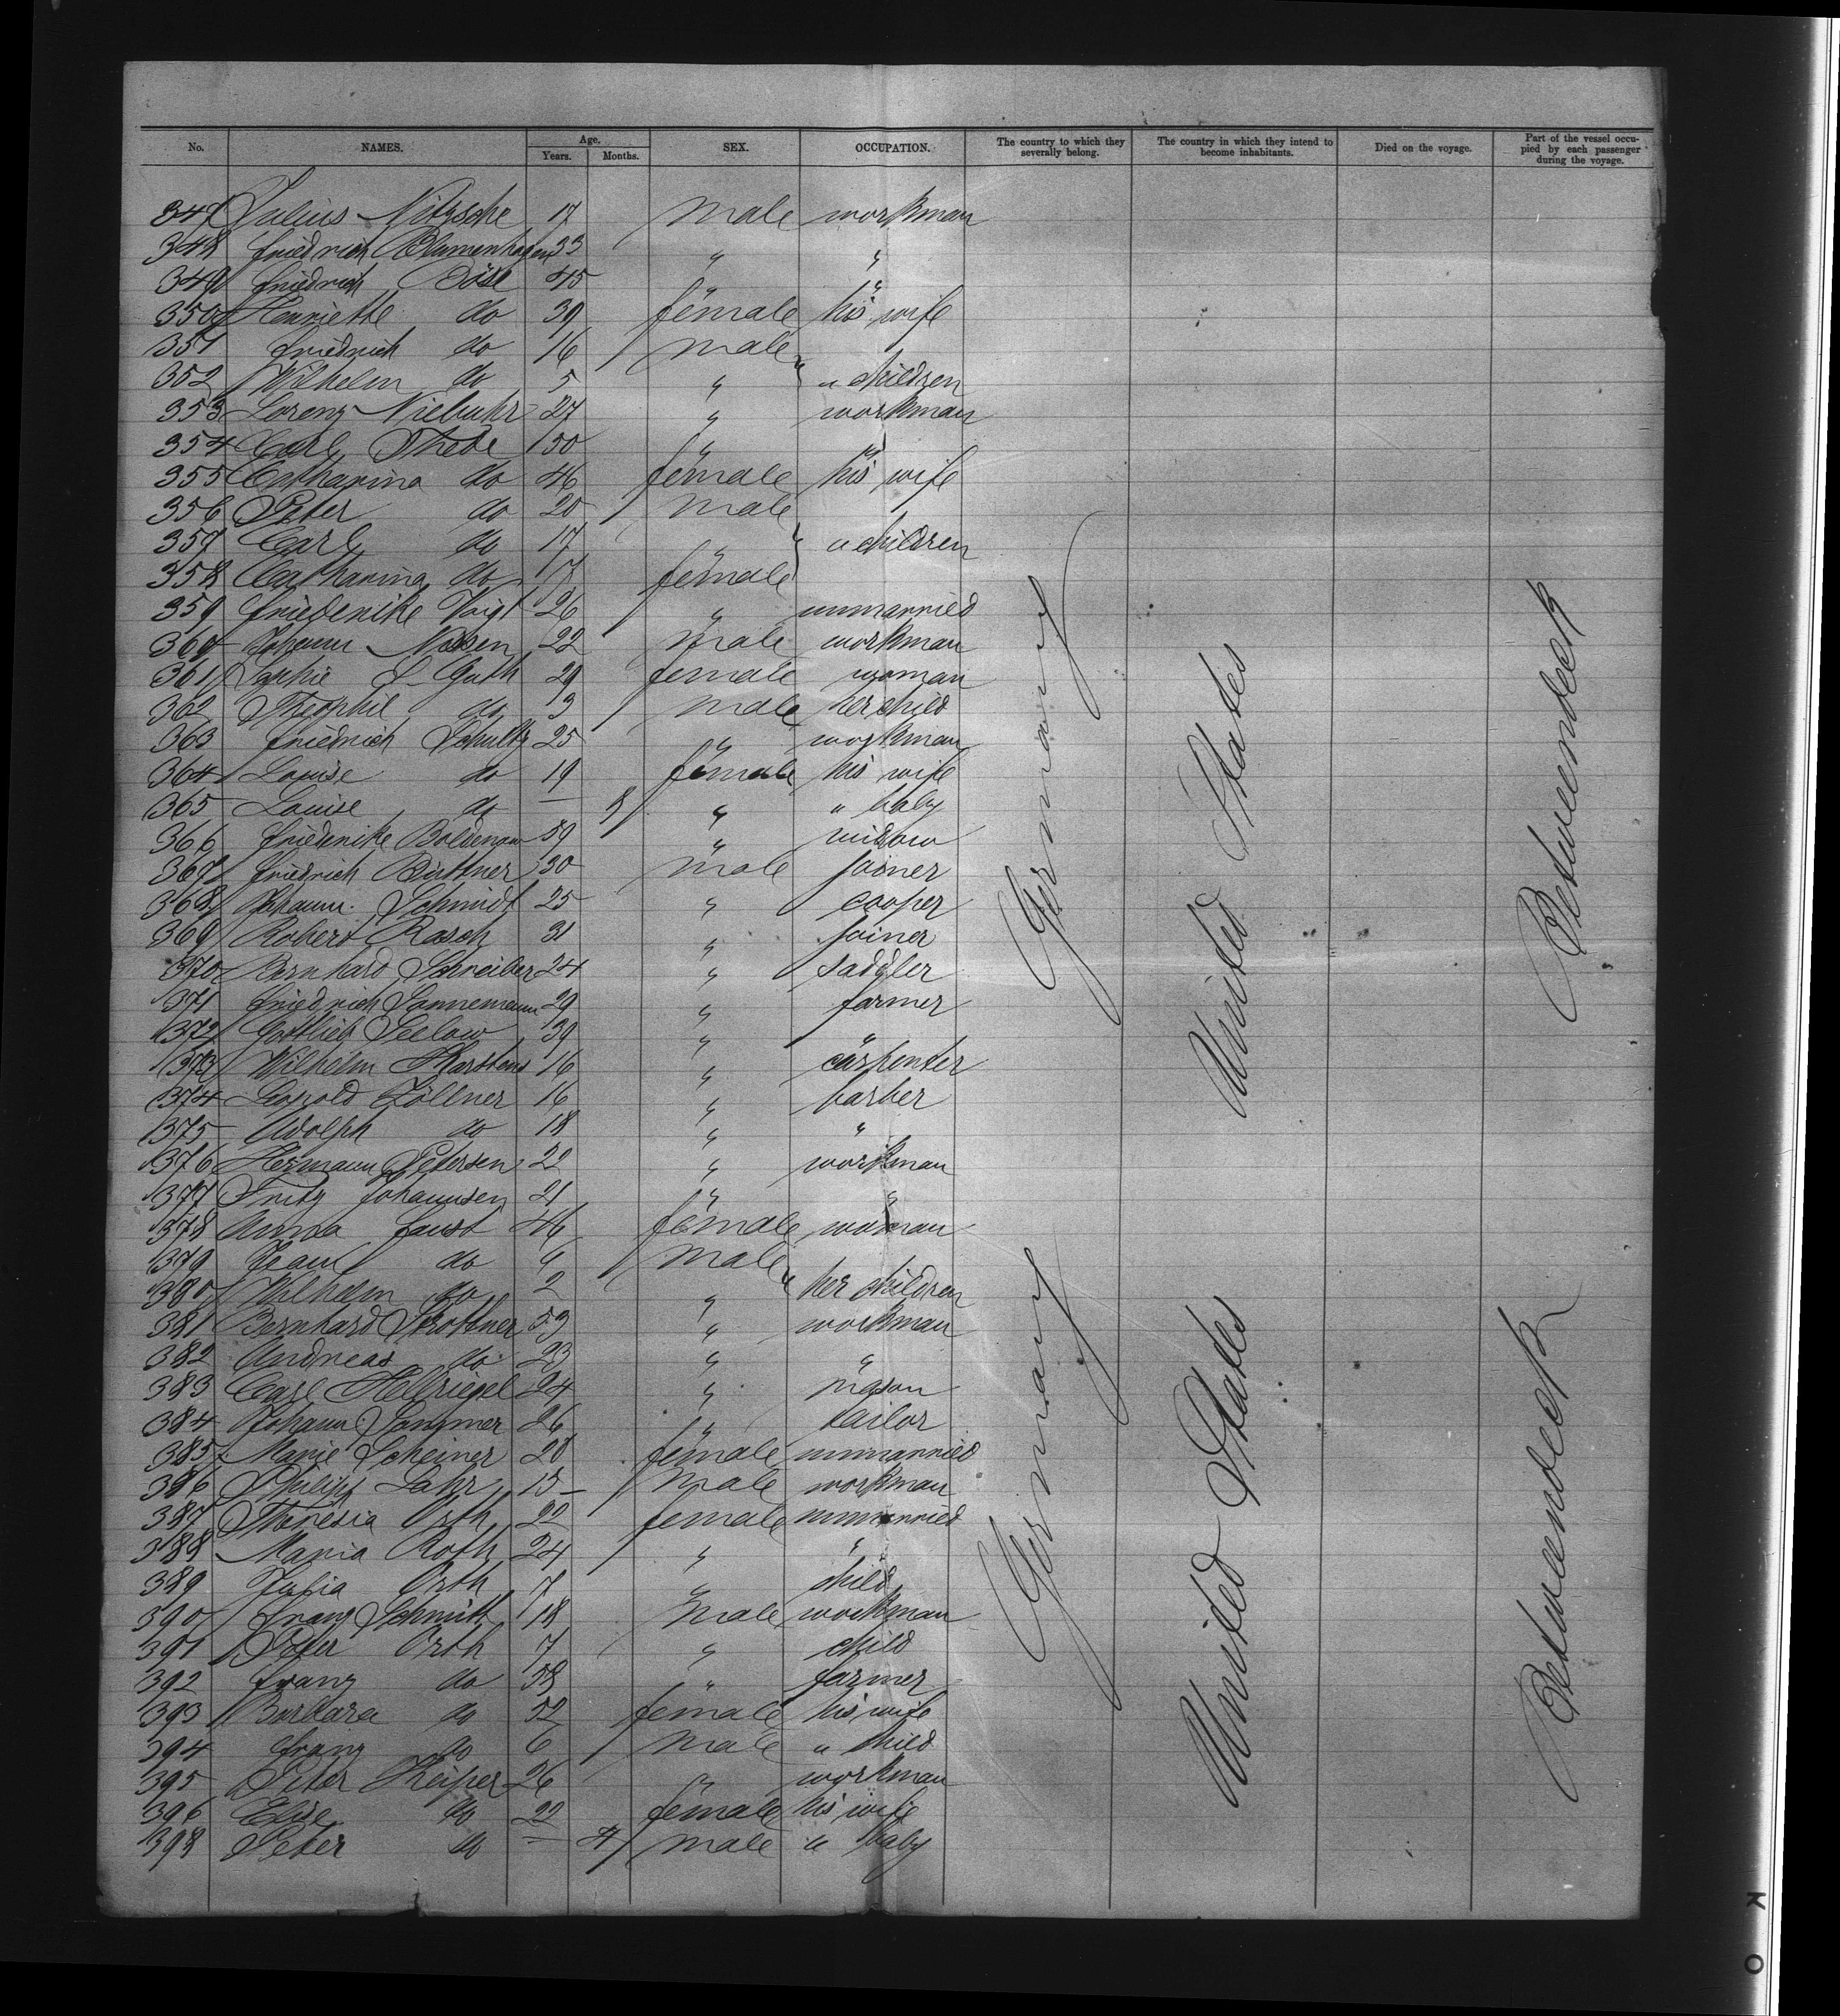 No. NAMES. Age, Years. Months. SEX. OCCUPATION. The country to which they severally belong. The country in which they intend to become inhabitants. Died on the voyage. Part of the vessel occupied by each passenger during the voyage.
347 Julius Nitzsche 17 male workman
348 Friedrich Blumenhagen 33 " "
349 Friedrich Böse 45 " "
350 Henriette do 39 female his wife
351 Friedrich do 16 male
352 Wilhelm do 5 " " children
353 Lorenz Niebuhr 27 " workman
354 Carl Thede 50 " "
355 Catharina do 46 female his wife
356 Peter do 20 male
357 Carl do 17 " " children
358 Catharina do 7 female
359 Friederike Voigt 26 " unmarried
360 Johann Nissen 22 male workman
361 Sophie Guth 29 female woman
362 Theophil do 3 male her child
363 Friedrich Schultz 25 " workman
364 Louise do 19 female his wife
365 Louise do — 8 " " baby
366 Friederike 59 " widow
367 Friedrich Büttner 30 male joiner
368 Johann Schmidt 25 " cooper
369 Robert Rasch 31 " joiner
370 Bernhard Schreiber 24 " saddler
371 Friedrich Sannemann 29 " farmer
372 Gottlieb Seelow 39 " "
373 Wilhelm Karstens 16 " carpenter
374 Leopold Zöllner 16 " barber
375 Adolph do 18 " "
376 Hermann Petersen 22 " workman
377 Fritz Johannsen 21 " "
378 Anna Faust 46 female woman
379 Jean do male
380 Wilhelm do 2 " " her children
381 Bernhard 53 " workman
382 Andreas do 23 " "
383 Carl Hellriegel 24 " mason
384 Johann Sommer 26 " tailor
385 Marie Scheiner 20 female unmarried
386 Philipp Lahr 15 male workman
387 Theresia Orth 22 female unmarried
388 Maria Roth 24 " "
389 Julia Orth 7 " child
390 Franz Schmitt 18 male workman
391 Peter Orth 7 " child
392 Franz do 58 " farmer
393 Barbara do 52 female his wife
394 Franz do 6 male " child
395 Peter Keiper 26 " workman
396 Elise do 22 female his wife
398 Peter do — 4 male " baby
Germany
United States
Betweendeck
Germany
United States
Betweendeck
K O